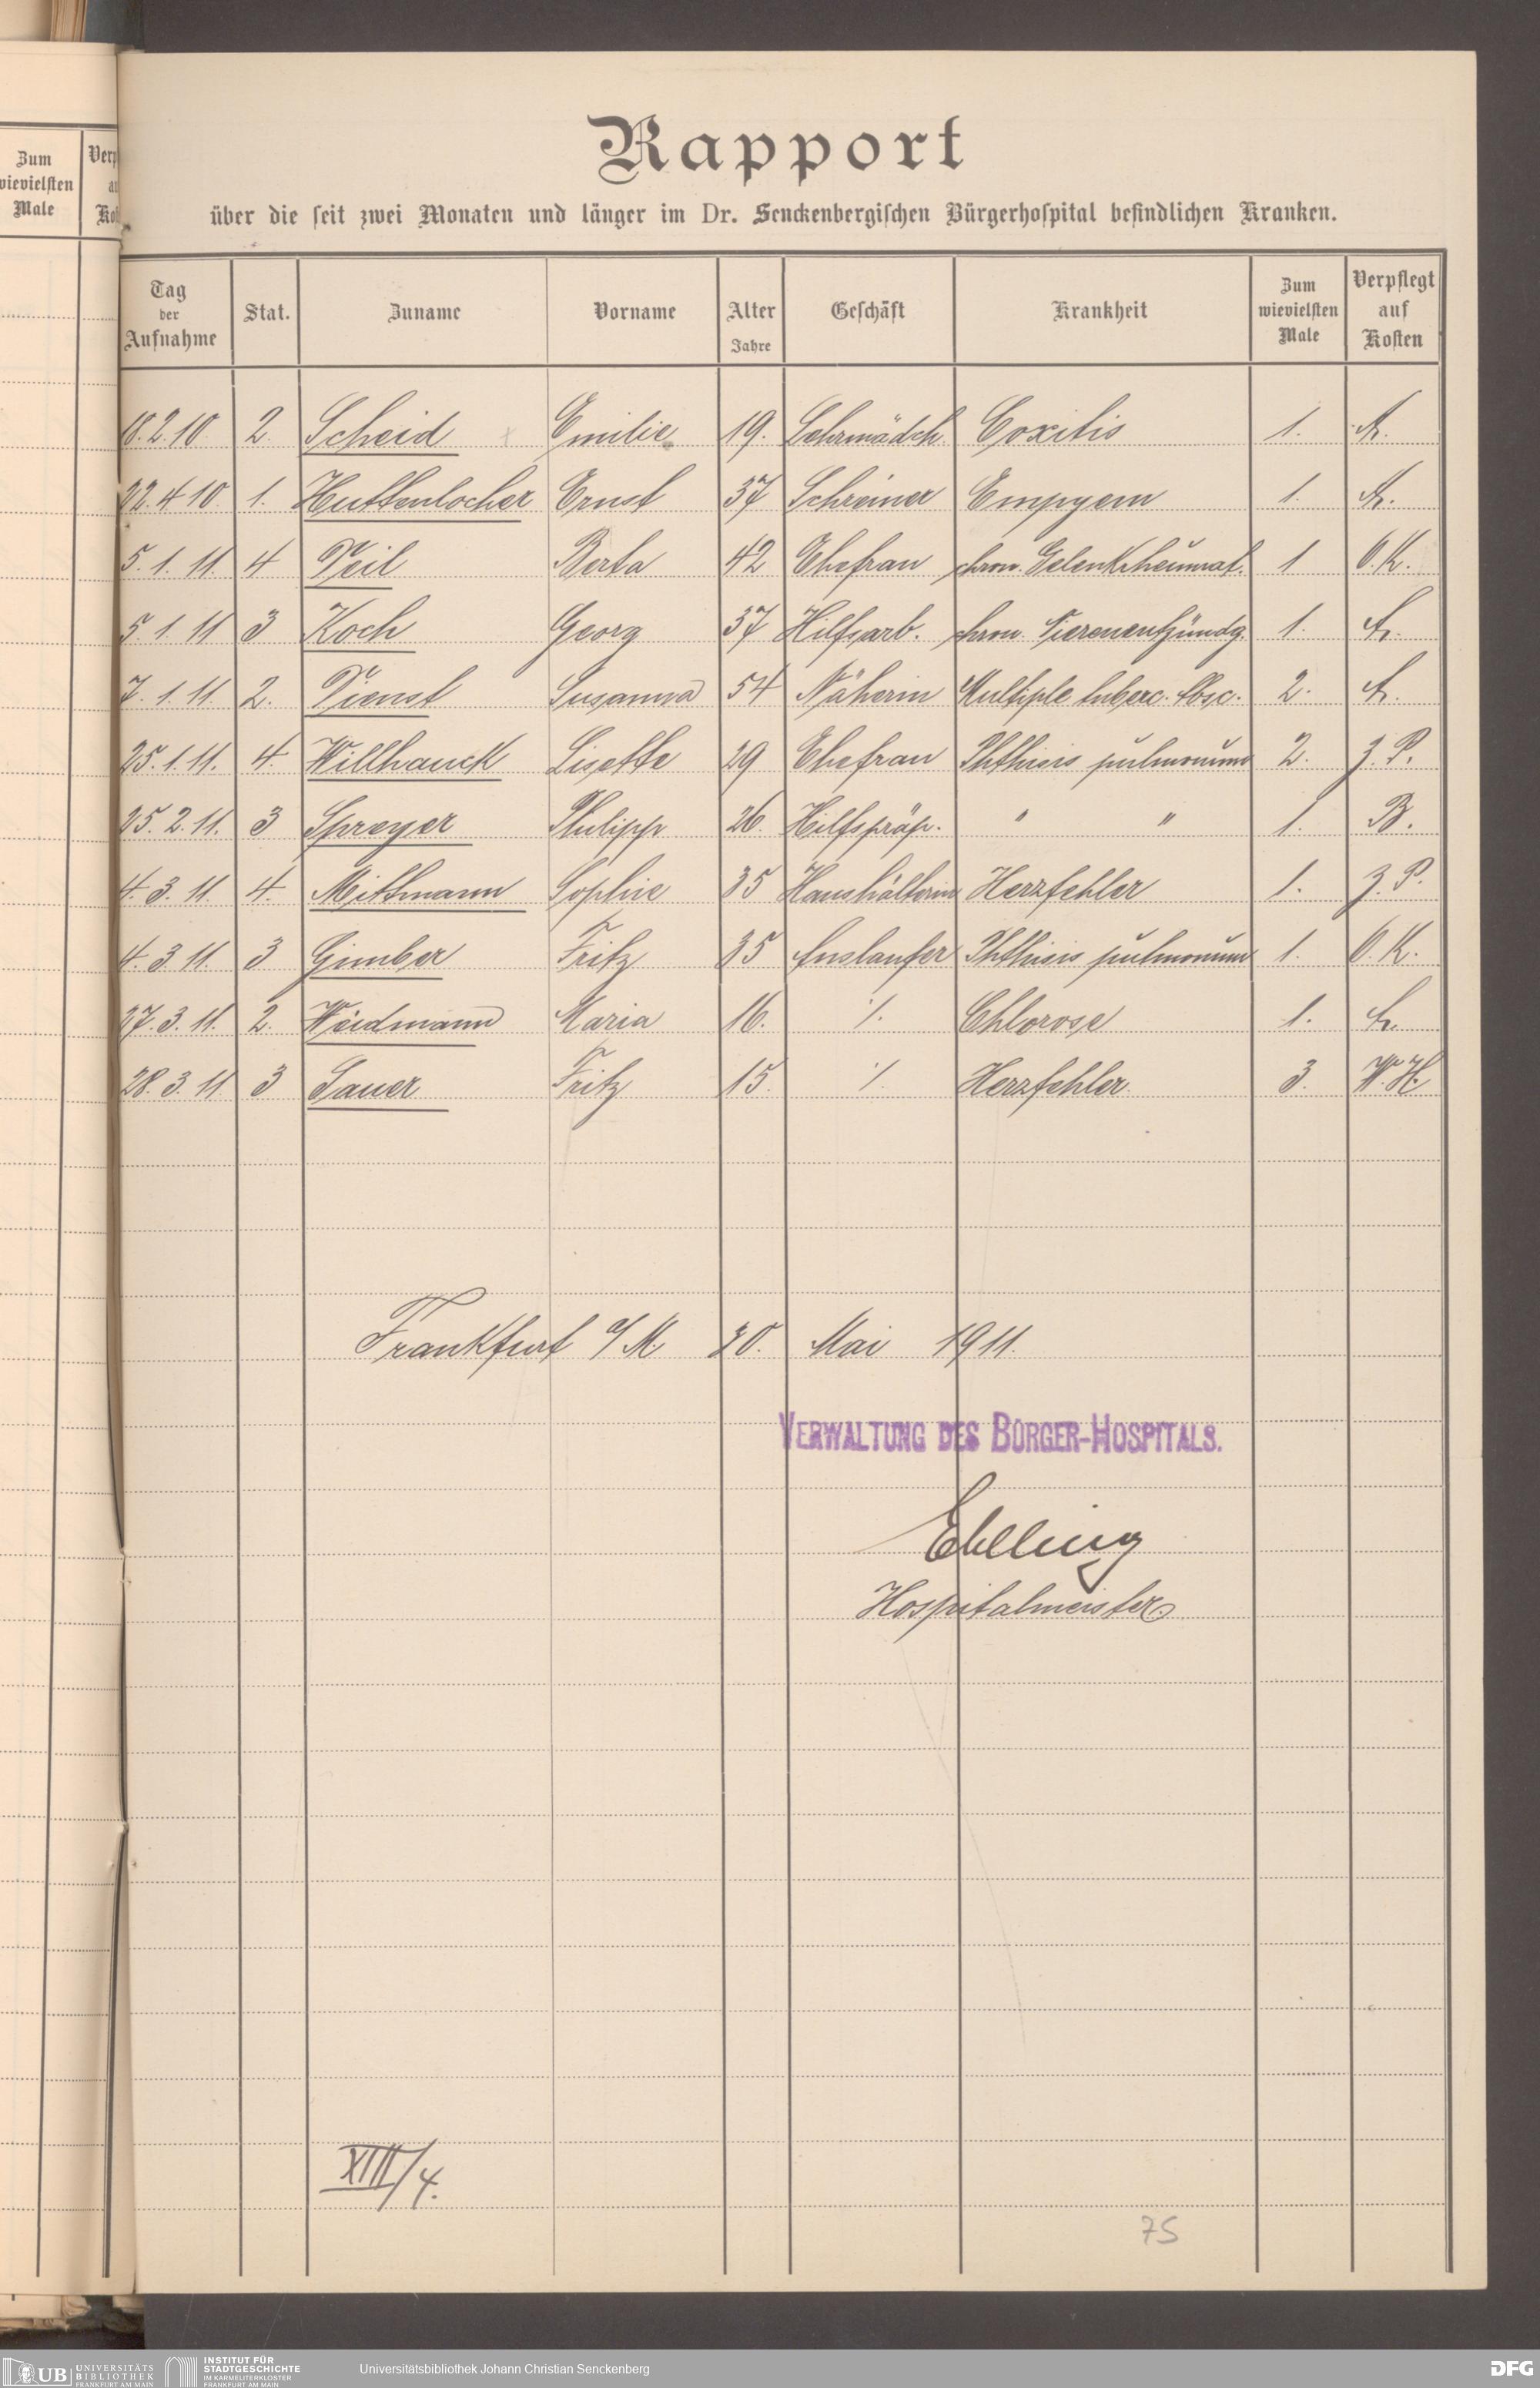 Zum
wievielsten
Male
Rapport
über die seit zwei Monaten und länger im Dr. Senckenbergischen Bürgerhospital befindlichen Kranken.
Tag der Aufnahme Stat. Zuname Vorname Alter Jahre Geschäft Krankheit Zum wievielsten Male Verpflegt auf Kosten
18.2.10 2. Scheid Emilie 19. Lehrmädch Coxitis 1. A.
22.4 10 1. Huttenlocher Ernst 37 Schreiner Empyem 1. A.
5. 1. 11. 4 Veil Berta 42 Ehefrau chron. Gelenkrheumat. 1 O.K.
5. 1. 11 3 Koch Georg 37 Hilfsarb. chron. Nierenentzündg. 1. A.
7. 1. 11. 2. Dienst Susanna 54 Näherin Multiple tuberc. Absc. 2. A.
25. 1. 11. 4. Willhauck Lisette 29 Ehefrau Phthisis pulmonum 2. Z. P.
25. 2. 11. 3 Spreyer Philipp 26. Hilfspräp. " " 1. B.
4. 3. 11. 4. Mithmann Sophie 35 Haushälterin Herzfehler 1. Z. P.
4. 3 11. 3 Gimber Fritz 35 Auslaufer Phthisis pulmonum 1. O. K.
27. 3. 11. 2. Weidmann Maria 16. ./. Chlorose 1. A.
28. 3. 11 3 Sauer Fritz 15. ./. Herzfehler. 3. W. H.
Frankfurt a/M. 30. Mai 1911.
VERWALTUNG DES BÜRGER-HOSPITALS.
Ebeling
Hospitalmeister.
XIII/4.
75
UB UNIVERSITÄTS BIBLIOTHEK FRANKFURT AM MAIN
INSTITUT FÜR STADTGESCHICHTE IM KARMELITERKLOSTER FRANKFURT AM MAIN
Universitätsbibliothek Johann Christian Senckenberg
DFG